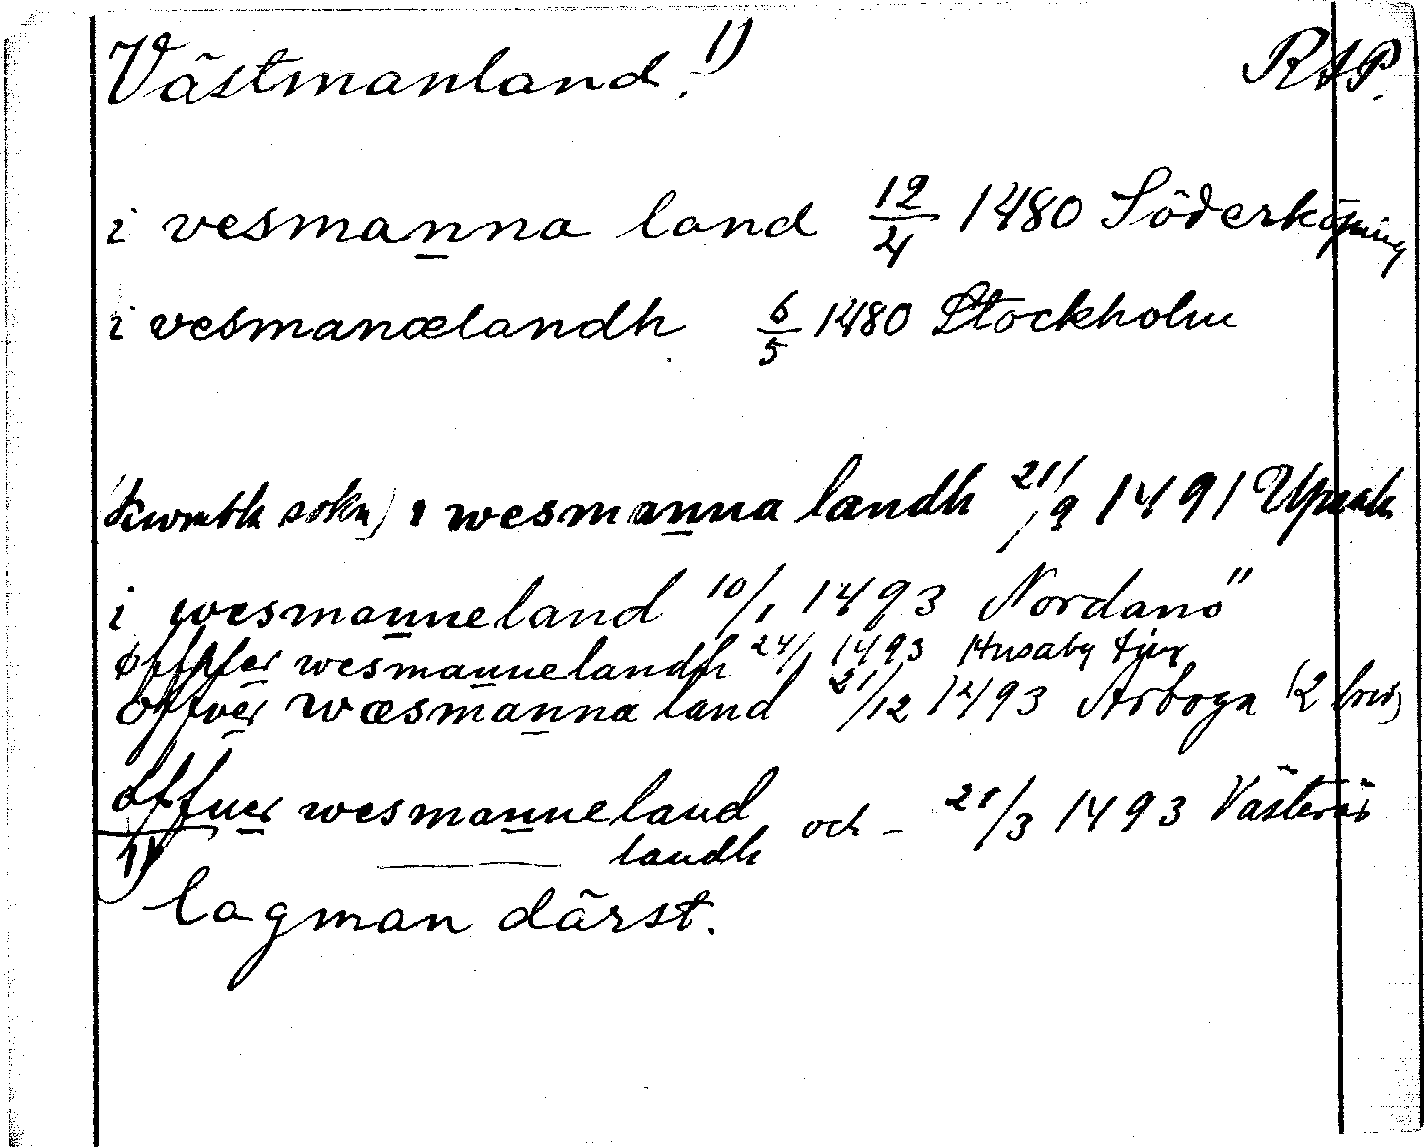 Västmanland. 1) RAP.
i vesmanna land 12/4 1480 Söderköping
i vesmanælandh 6/5 1480 Stockholm
sokn) i wesmanna landh 21/9 1491 Upsala
i wesmanneland 10/1 1493 Nordanö
wesmannelandh 24/1 1493 Husaby
offver wæsmanna land 21/12 1493 Arboga (2 brev)
offuer wesmanneland och - 28/3 1493 Västerås
landh
1) lagman därst.